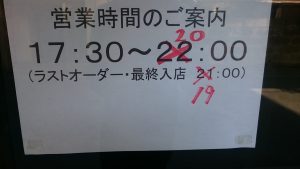 営業時間のご案内
20
17:30～22:00
(ラストオーダー・最終入店 21:00)
19